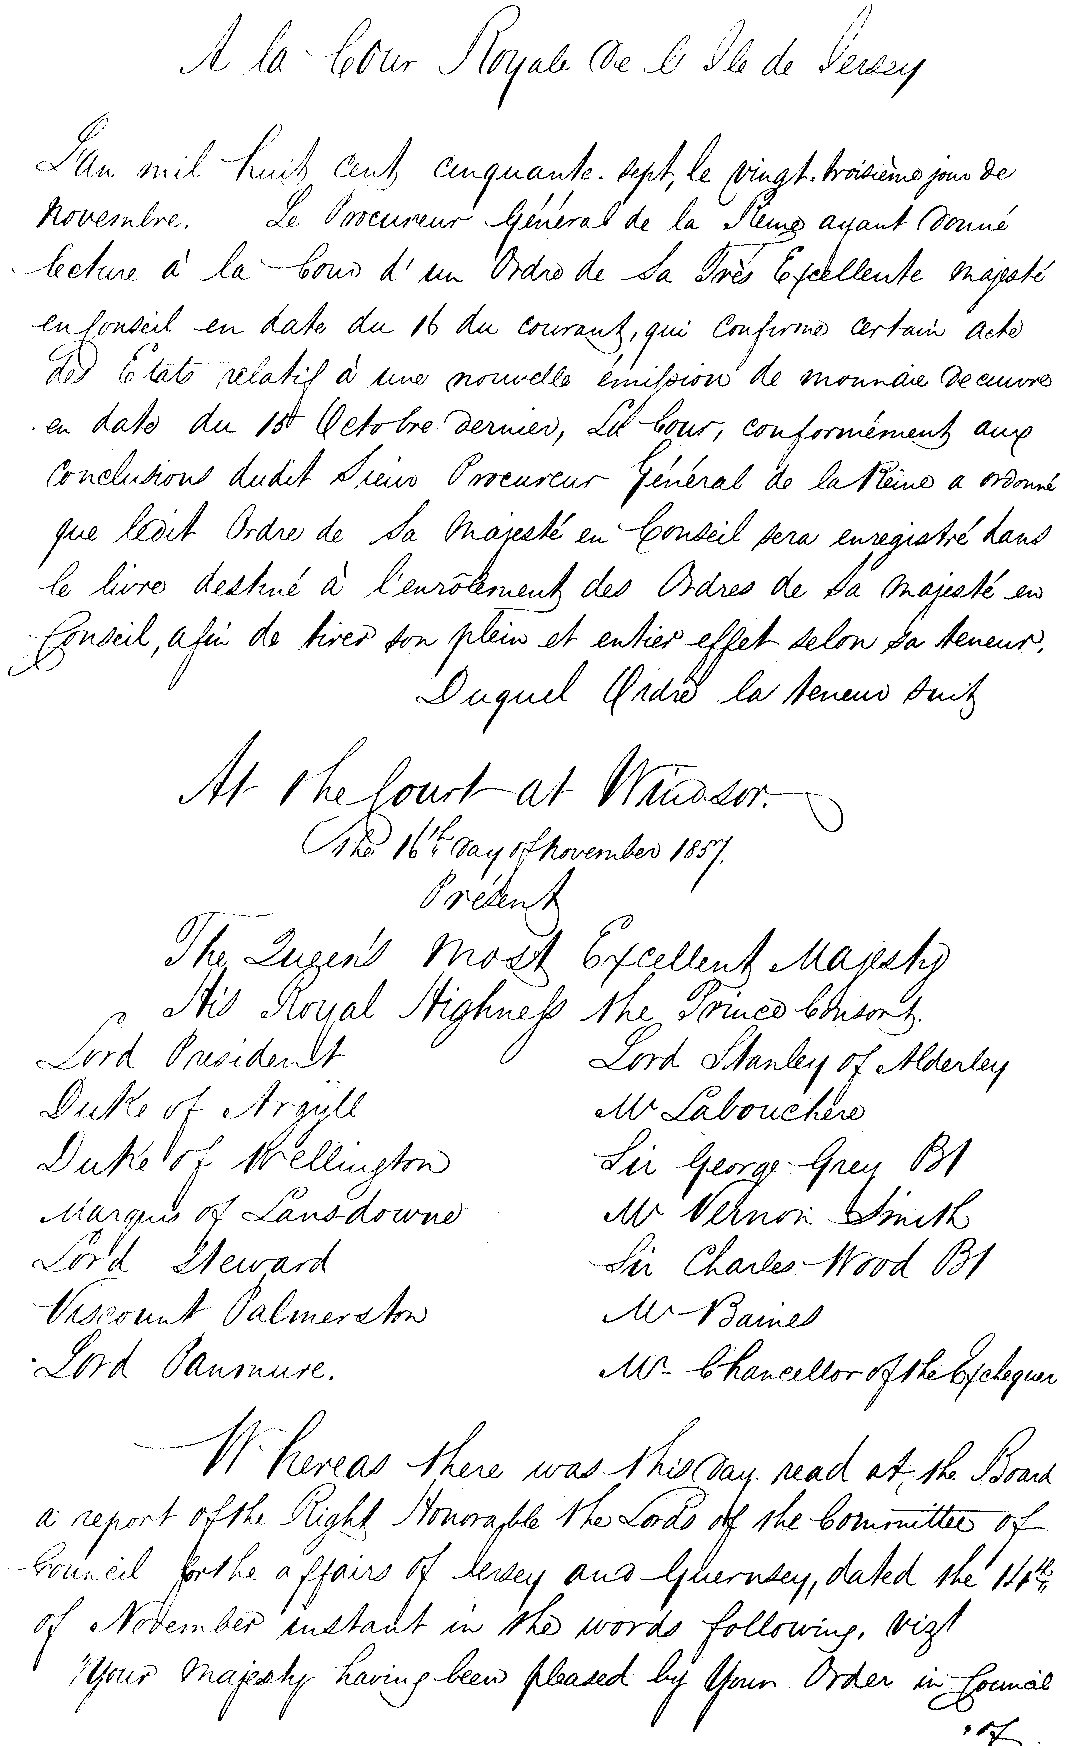 A la Cour Royale de l'Ile de Jersey
L'an mil huit cent cinquante-sept, le vingt-troisième jour de
Novembre. Le Procureur Général de la Reine ayant donné
lecture à la Cour d'un Ordre de Sa Très Excellente Majesté
en Conseil en date du 16 du courant, qui confirme certain acte
des Etats relatif à une nouvelle émission de monnaie de cuivre
en date du 15 Octobre dernier, La Cour, conformément aux
conclusions dudit Sieur Procureur Général de la Reine a ordonné
que ledit Ordre de Sa Majesté en Conseil sera enregistré dans
le livre destiné à l'enrôlement des Ordres de Sa Majesté en
Conseil, afin de tirer son plein et entier effet selon sa teneur.
Duquel Ordre la teneur suit
At the Court at Windsor.
The 16th day of November 1857.
Présent
The Queen's Most Excellent Majesty
His Royal Highness the Prince Consort.
Lord President Lord Stanley of Alderley
Duke of Argyll Mr Labouchère
Duke of Wellington Sir George Grey Bt
Marquis of Lansdowne Mr Vernon Smith
Lord Steward Sir Charles Wood Bt
Viscount Palmerston Mr Baines
Lord Panmure. Mr Chancellor of the Exchequer
Whereas there was this day read at the Board
a report of the Right Honorable the Lords of the Committee of
Council for the affairs of Jersey and Guernsey, dated the 14th
of November instant in the words following, vizt
"Your Majesty having been pleased by Your Order in Council
of